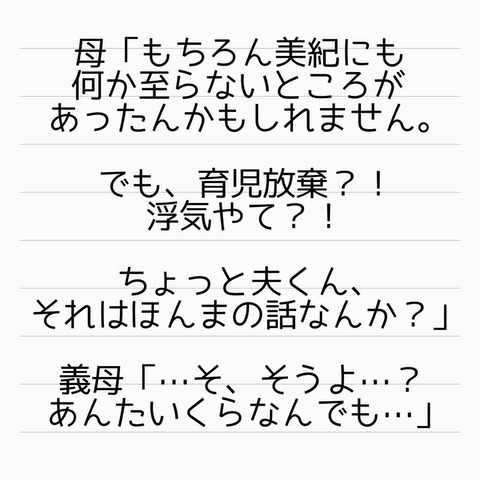 母「もちろん美紀にも
何か至らないところが
あったんかもしれません。
でも、育児放棄？！
浮気やて？！
ちょっと夫くん、
それはほんまの話なんか？」
義母「…そ、そうよ…？
あんたいくらなんでも…」